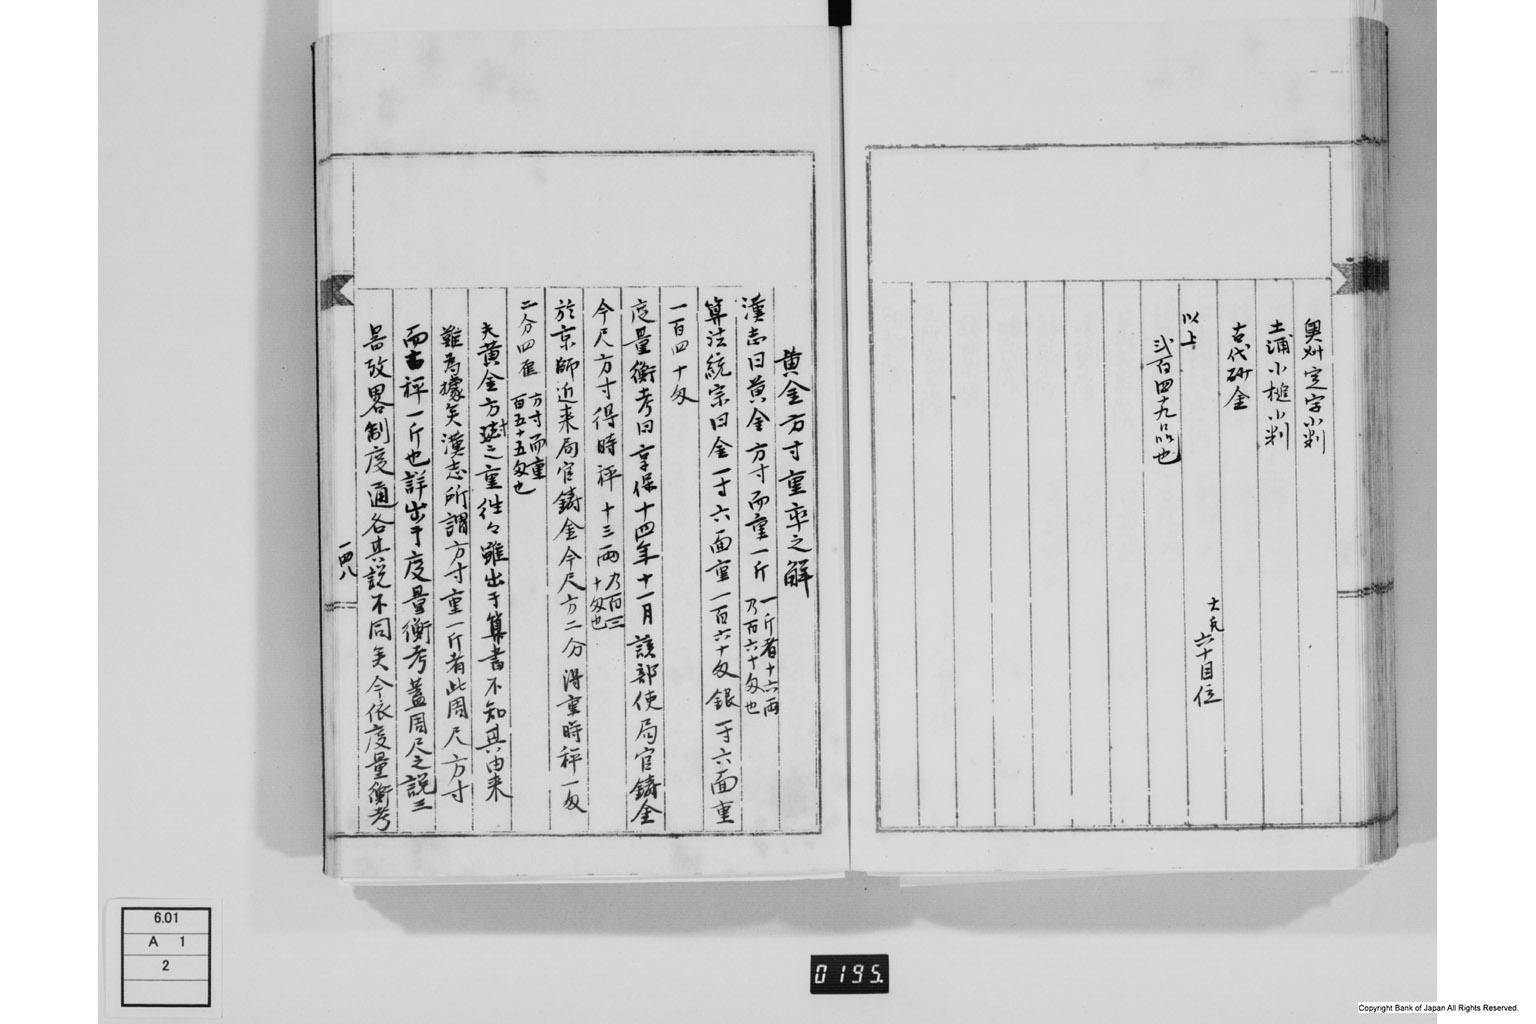 奥州定字小判
土浦小槌小判
古代砂金 大凡六十目位
以上
弐百四十九品也
黄金方寸重率之解
漢志曰黄金方寸而重一斤 一斤者十六両
乃百六十匁也
算法統宗曰金一寸六面重一百六十匁銀一寸六面重
一百四十匁
度量衡考曰享保十四年十一月該部使局官鋳金
今尺方寸得時秤十三両 乃百三
十匁也
於京師近来局官鋳金今尺方二分得重時秤一匁
二分四厘 方寸而重
百五十五匁也
夫黄金方寸之重往々雖出于算書不知其由来
難為據矣漢志所謂方寸重一斤者此周尺方寸
而古秤一斤也詳出于度量衡考蓋周尺之説三
器攷畧制度通各其説不同矣今依度量衡考
一四八
6.01
A 1
2
0195.
Copyright Bank of Japan All Rights Reserved.